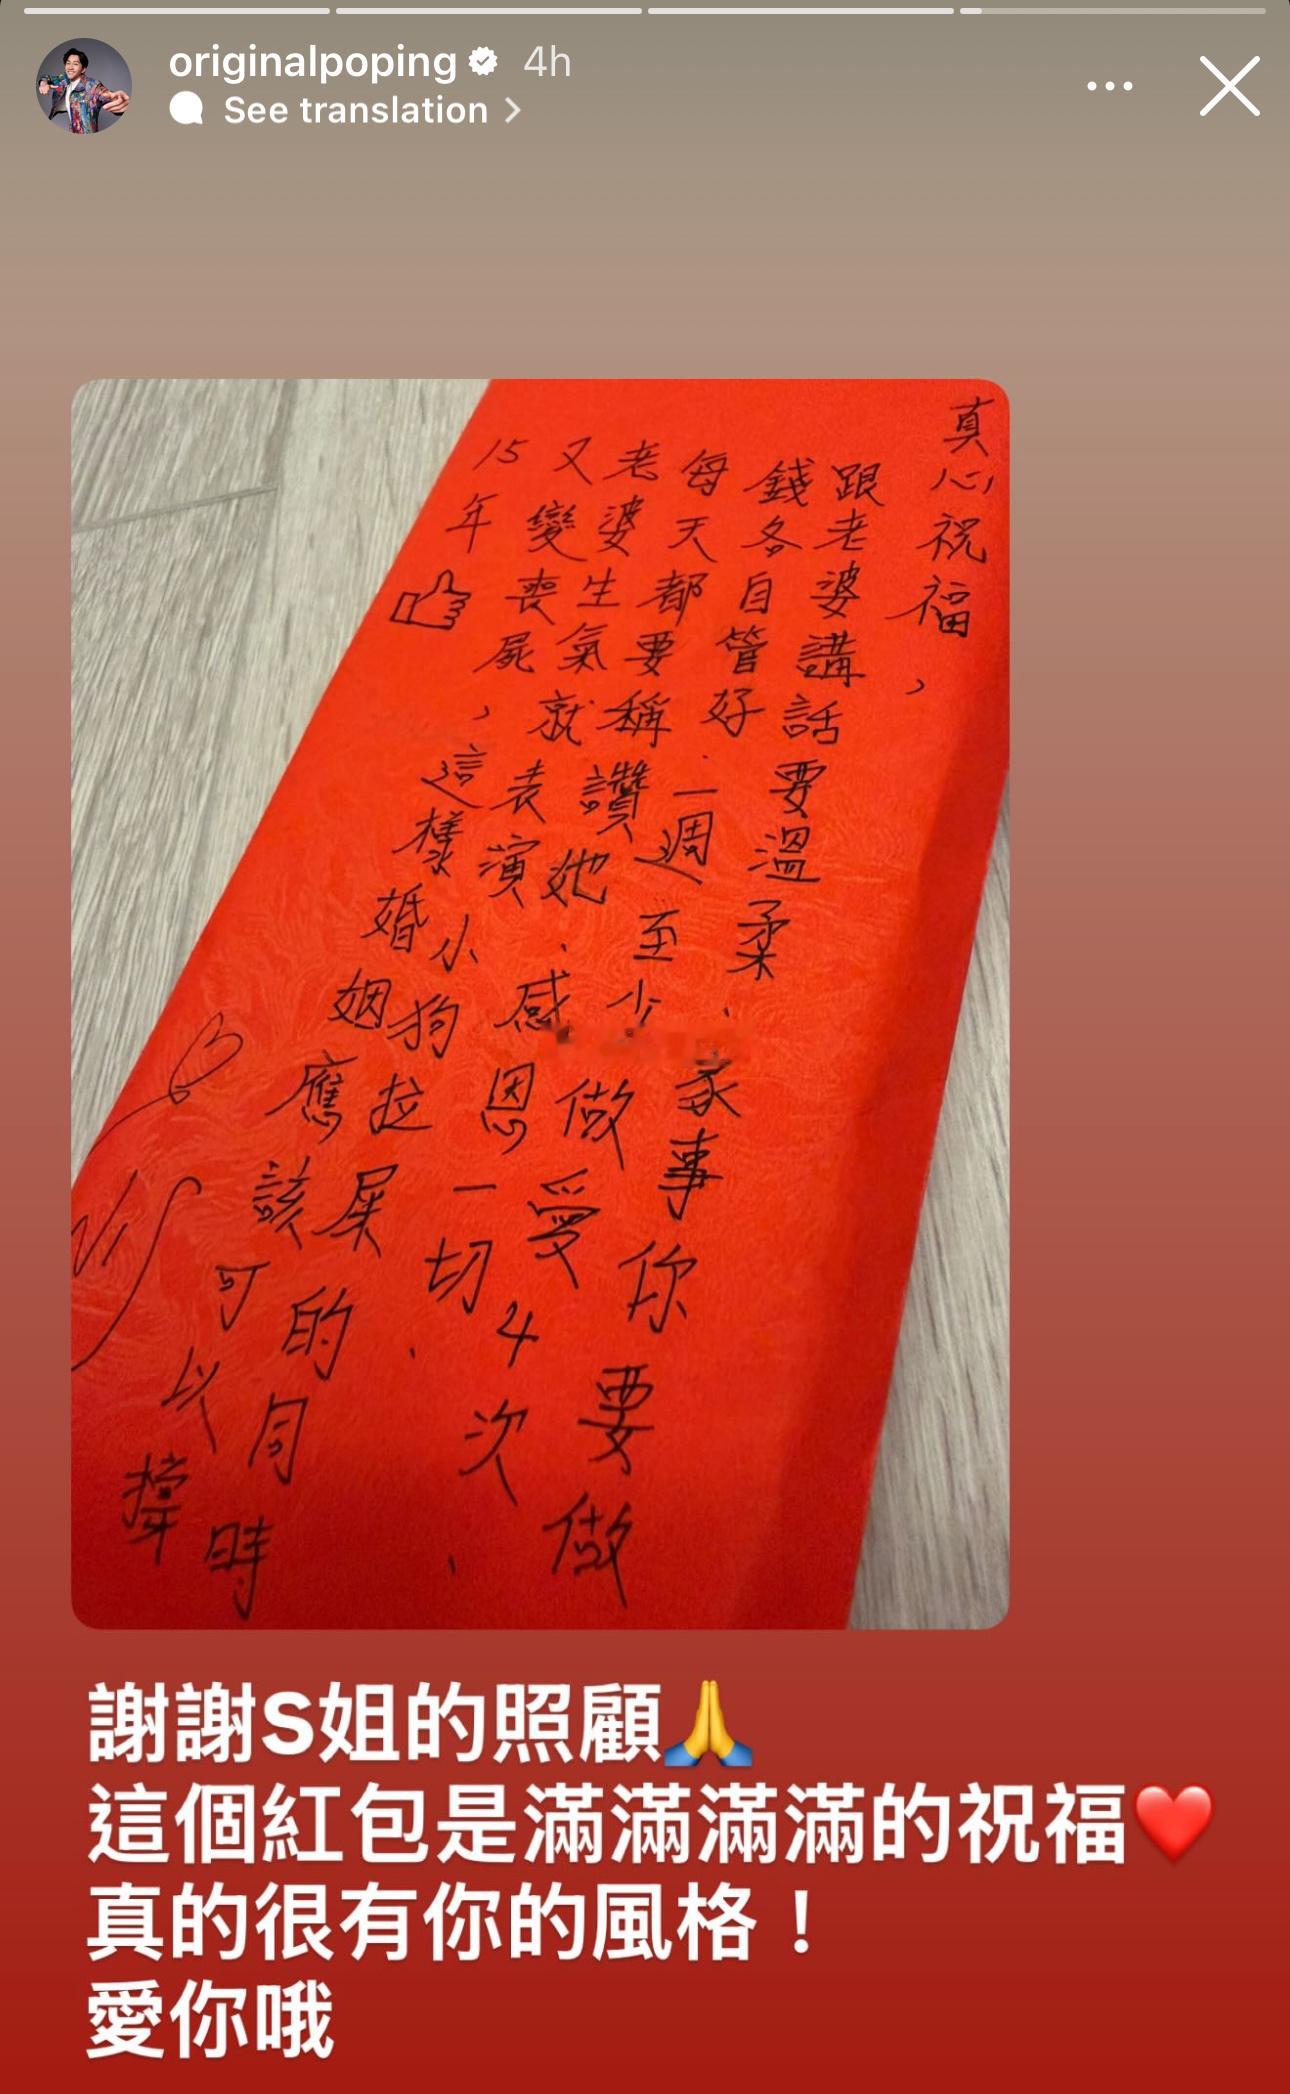 originalpoping 4h
See translation
真心祝福，
跟老婆講話要溫柔．家事你要做
錢各自管好．一週至少做愛4次、
每天都要稱讚她．感恩一切．
老婆生氣就表演小狗拉屎的同時
又變喪屍，這樣婚姻應該可以撐
15年
謝謝S姐的照顧🙏
這個紅包是滿滿滿滿的祝福❤️
真的很有你的風格！
愛你哦